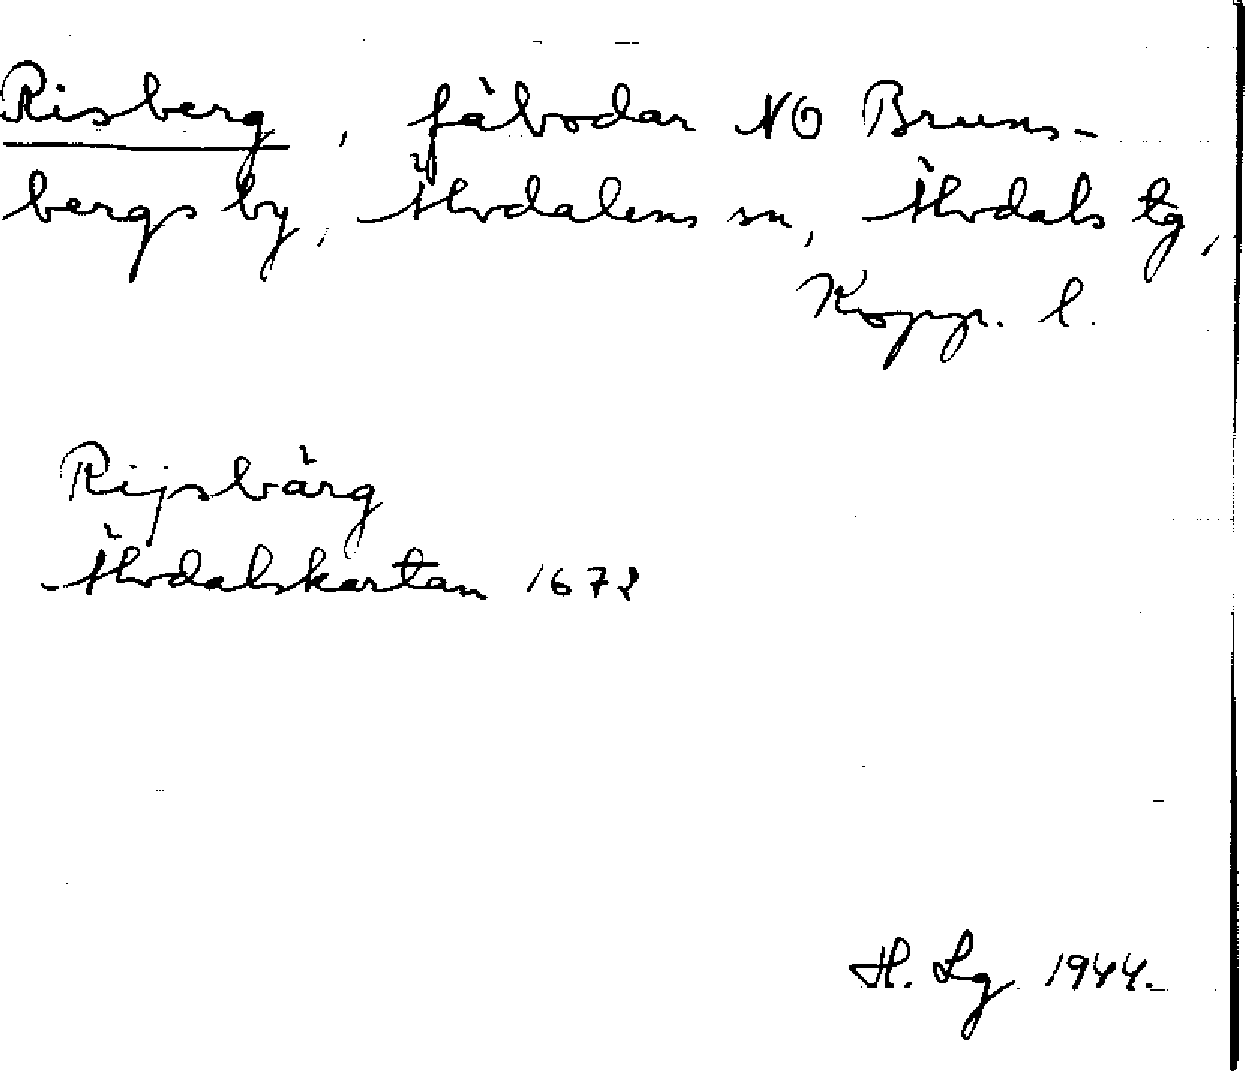 Risberg, fäbodar NO Bruns-
bergs by, Älvdalens sn, Älvdals tg,
Kopp. l.
Rijsbärg
Älvdalskartan 1672
H. Lg 1944.